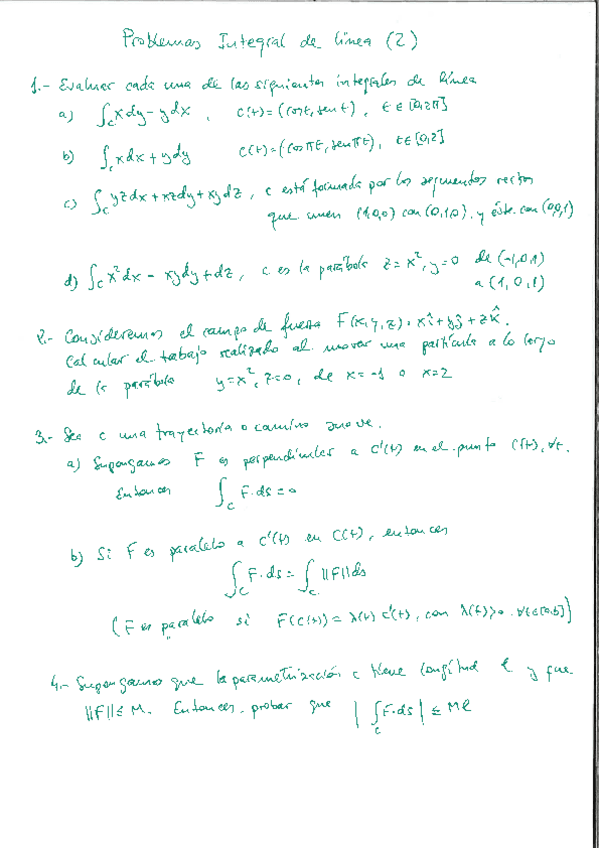 Problemas Integral de línea (2)
1.- Evaluar cada una de las siguientes integrales de línea
a) ∫_C xdy - ydx , C(t)=(cost, sent), t∈[0,2π]
b) ∫_C xdx + ydy C(t)=(cosπt, senπt), t∈[0,2]
c) ∫_C yzdx + xzdy + xydz, c está formada por los segmentos rectos
que unen (1,0,0) con (0,1,0), y éste con (0,0,1)
d) ∫_C x²dx - xydy + dz, c es la parábola z=x², y=0 de (-1,0,1)
a (1,0,1)
2.- Consideremos el campo de fuerza F(x,y,z)=xî+yĵ+zk̂.
Calcular el trabajo realizado al mover una partícula a lo largo
de la parábola y=x², z=0, de x=-1 a x=2
3.- Sea c una trayectoria o camino suave.
a) Supongamos F es perpendicular a C'(t) en el punto C(t), ∀t.
Entonces ∫_C F·ds=0
b) Si F es paralelo a c'(t) en C(t), entonces
∫_C F·ds = ∫_C ||F||ds
(F es paralelo si F(C(t)) = λ(t) c'(t), con λ(t)>0 ∀t∈[a,b])
4.- Supongamos que la parametrización c tiene longitud l y que
||F||≤M. Entonces, probar que |∫_C F·ds| ≤ Ml